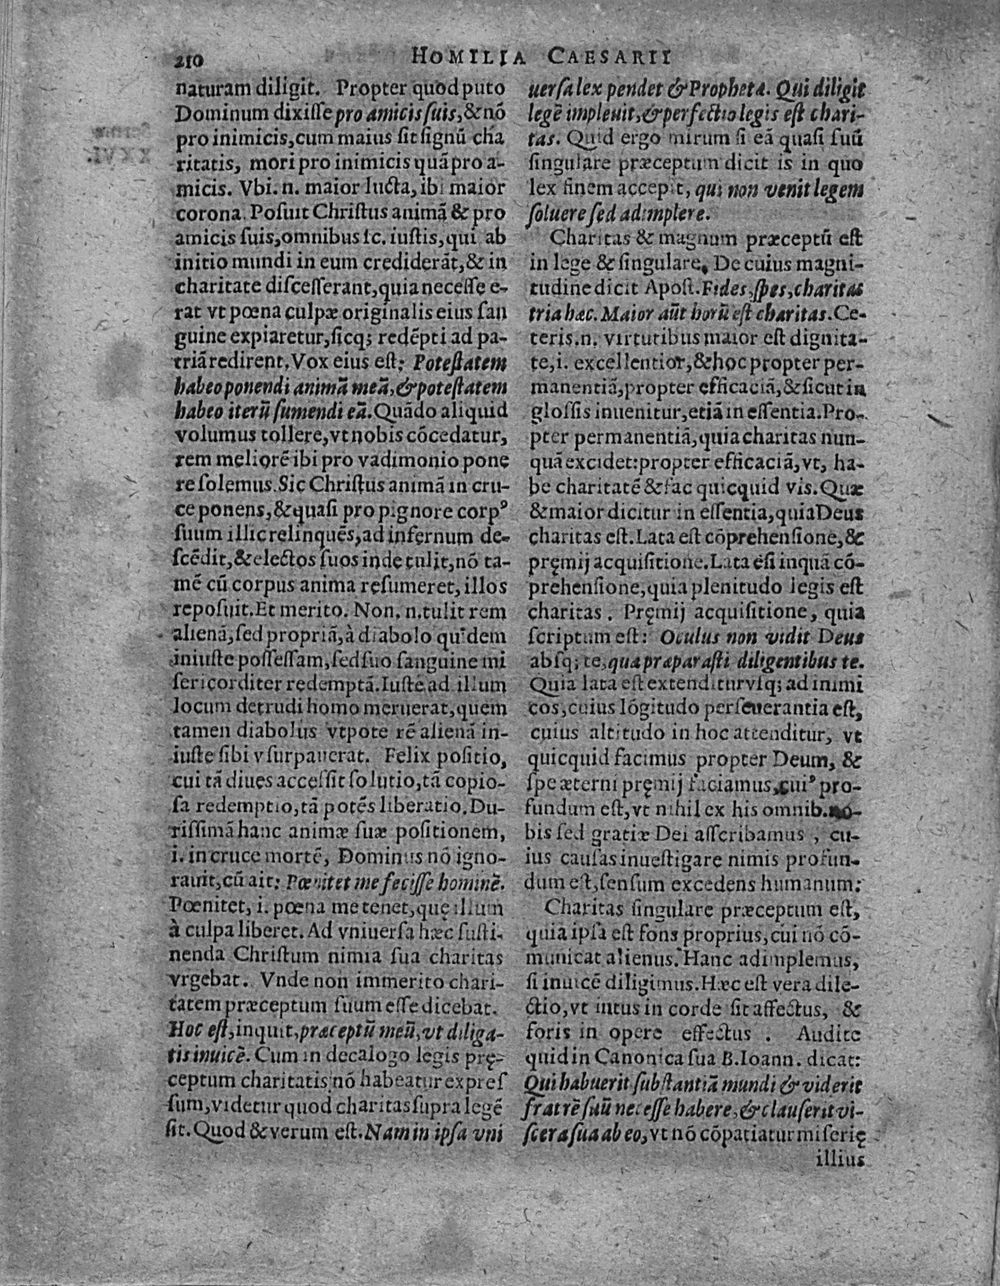 210
HOMILIA CAESARII
naturam diligit. Propter quod puto
Dominum dixiſſe pro amicis ſuis, & nō
pro inimicis, cum maius ſit ſignū cha
ritatis, mori pro inimicis quā pro a-
micis. Vbi. n. maior lucta, ibi maior
corona. Poſuit Chriſtus animā & pro
amicis ſuis, omnibus ſc. iuſtis, qui ab
initio mundi in eum crediderāt, & in
charitate diſceſſerant, quia neceſſe e-
rat vt pœna culpæ originalis eius ſan
guine expiaretur, ſicq; redēpti ad pa-
triā redirent. Vox eius eſt: Poteſtatem
habeo ponendi animā meā, & poteſtatem
habeo iterū ſumendi eā. Quādo aliquid
volumus tollere, vt nobis cōcedatur,
rem meliorē ibi pro vadimonio pone
re ſolemus. Sic Chriſtus animā in cru-
ce ponens, & quaſi pro pignore corpꝰ
ſuum illic relinquēs, ad infernum de-
ſcēdit, & electos ſuos inde tulit, nō ta-
mē cū corpus anima reſumeret, illos
repoſuit. Et merito. Non. n. tulit rem
alienā, ſed propriā, à diabolo quidem
iniuſte poſſeſſam, ſed ſuo ſanguine mi
ſericorditer redemptā. Iuſte ad illum
locum detrudi homo meruerat, quem
tamen diabolus vtpote rē alienā in-
iuſte ſibi vſurpauerat. Felix poſitio,
cui tā diues acceſſit ſolutio, tā copio-
ſa redemptio, tā potēs liberatio. Du-
riſſimā hanc animæ ſuæ poſitionem,
i. in cruce mortē, Dominus nō igno-
rauit, cū ait: Pœnitet me feciſſe hominē.
Pœnitet, i. pœna me tenet, quę illum
à culpa liberet. Ad vniuerſa hæc ſuſti-
nenda Chriſtum nimia ſua charitas
vrgebat. Vnde non immerito chari-
tatem præceptum ſuum eſſe dicebat.
Hoc eſt, inquit, præceptū meū, vt diliga-
tis inuicē. Cum in decalogo legis prę-
ceptum charitatis nō habeatur expreſ
ſum, videtur quod charitas ſupra legē
ſit. Quod & verum eſt. Nam in ipſa vni
uerſa lex pendet & Prophetæ. Qui diligit
legē impleuit, & perfectio legis eſt chari-
tas. Quid ergo mirum ſi eā quaſi ſuū
ſingulare præceptum dicit is in quo
lex finem accepit, qui non venit legem
ſoluere ſed adimplere.
Charitas & magnum præceptū eſt
in lege & ſingulare. De cuius magni-
tudine dicit Apoſt. Fides, ſpes, charitas
tria hæc. Maior aūt horū eſt charitas. Ce-
teris. n. virtutibus maior eſt dignita-
te, i. excellentior, & hoc propter per-
manentiā, propter efficaciā, & ſicut in
gloſſis inuenitur, etiā in eſſentia. Pro-
pter permanentiā, quia charitas nun-
quā excidet: propter efficaciā, vt, ha-
be charitatē & fac quicquid vis. Quæ
& maior dicitur in eſſentia, quia Deus
charitas eſt. Lata eſt cōprehenſione, &
pręmij acquiſitione. Lata eſt inquā cō-
prehenſione, quia plenitudo legis eſt
charitas. Pręmij acquiſitione, quia
ſcriptum eſt: Oculus non vidit Deus
abſq; te, quæ præparaſti diligentibus te.
Quia lata eſt extenditur vſq; ad inimi
cos, cuius lōgitudo perſeuerantia eſt,
cuius altitudo in hoc attenditur, vt
quicquid facimus propter Deum, &
ſpe æterni pręmij faciamus, cuiꝰ pro-
fundum eſt, vt nihil ex his omnib. no-
bis ſed gratiæ Dei aſſcribamus, cu-
ius cauſas inueſtigare nimis profun-
dum eſt, ſenſum excedens humanum:
Charitas ſingulare præceptum eſt,
quia ipſa eſt fons proprius, cui nō cō-
municat alienus. Hanc adimplemus,
ſi inuicē diligimus. Hæc eſt vera dile-
ctio, vt intus in corde ſit affectus, &
foris in opere effectus. Audite
quid in Canonica ſua B. Ioann. dicat:
Qui habuerit ſubſtantiā mundi & viderit
fratrē ſuū neceſſe habere, & clauſerit vi-
ſcera ſua ab eo, vt nō cōpatiatur miſerię
illius